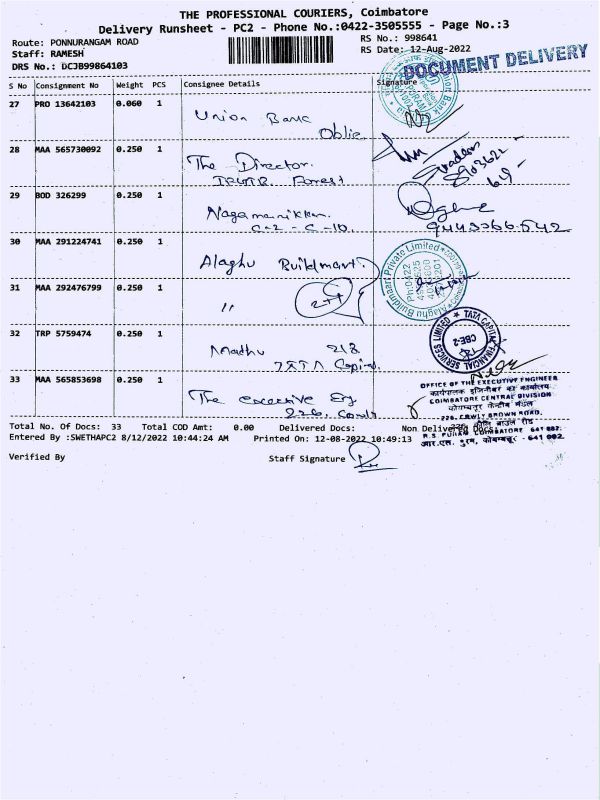 THE PROFESSIONAL COURIERS, Coimbatore
Delivery Runsheet - PC2 - Phone No.:0422-3505555 - Page No.:3
Route: PONNURANGAM ROAD
RS No.: 998641
Staff: RAMESH
RS Date: 12-Aug-2022
DRS No.: DCJB99864103
DOCUMENT DELIVERY
S No Consignment No Weight PCS Consignee Details Signature
27 PRO 13642103 0.060 1
Union Bank
28 MAA 565730092 0.250 1
The Director.
Forest
29 BOD 326299 0.250 1
C-2 - C-10.
9443366542
30 MAA 291224741 0.250 1
Alaghu Buildmart.
Alaghu Buildmaart Private Limited
31 MAA 292476799 0.250 1
"
32 TRP 5759474 0.250 1
Madhu 218
TATA Capital
TATA CAPITAL FINANCIAL SERVICES LIMITED
CBE-2
33 MAA 565853698 0.250 1
The executive Eng
226.
OFFICE OF THE EXECUTIVE ENGINEER
कार्यपालक इंजिनीयर का कार्यालय
COIMBATORE CENTRAL DIVISION
कोयम्बत्तूर केन्द्रीय मंडल
226, COWLY BROWN ROAD,
R.S PURAM COIMBATORE 641 002.
आर.एस. पुरम, कोयम्बत्तूर - 641 002.
Total No. Of Docs: 33 Total COD Amt: 0.00 Delivered Docs: Non Delivered Docs:
Entered By :SWETHAPC2 8/12/2022 10:44:24 AM Printed On: 12-08-2022 10:49:13
Verified By Staff Signature